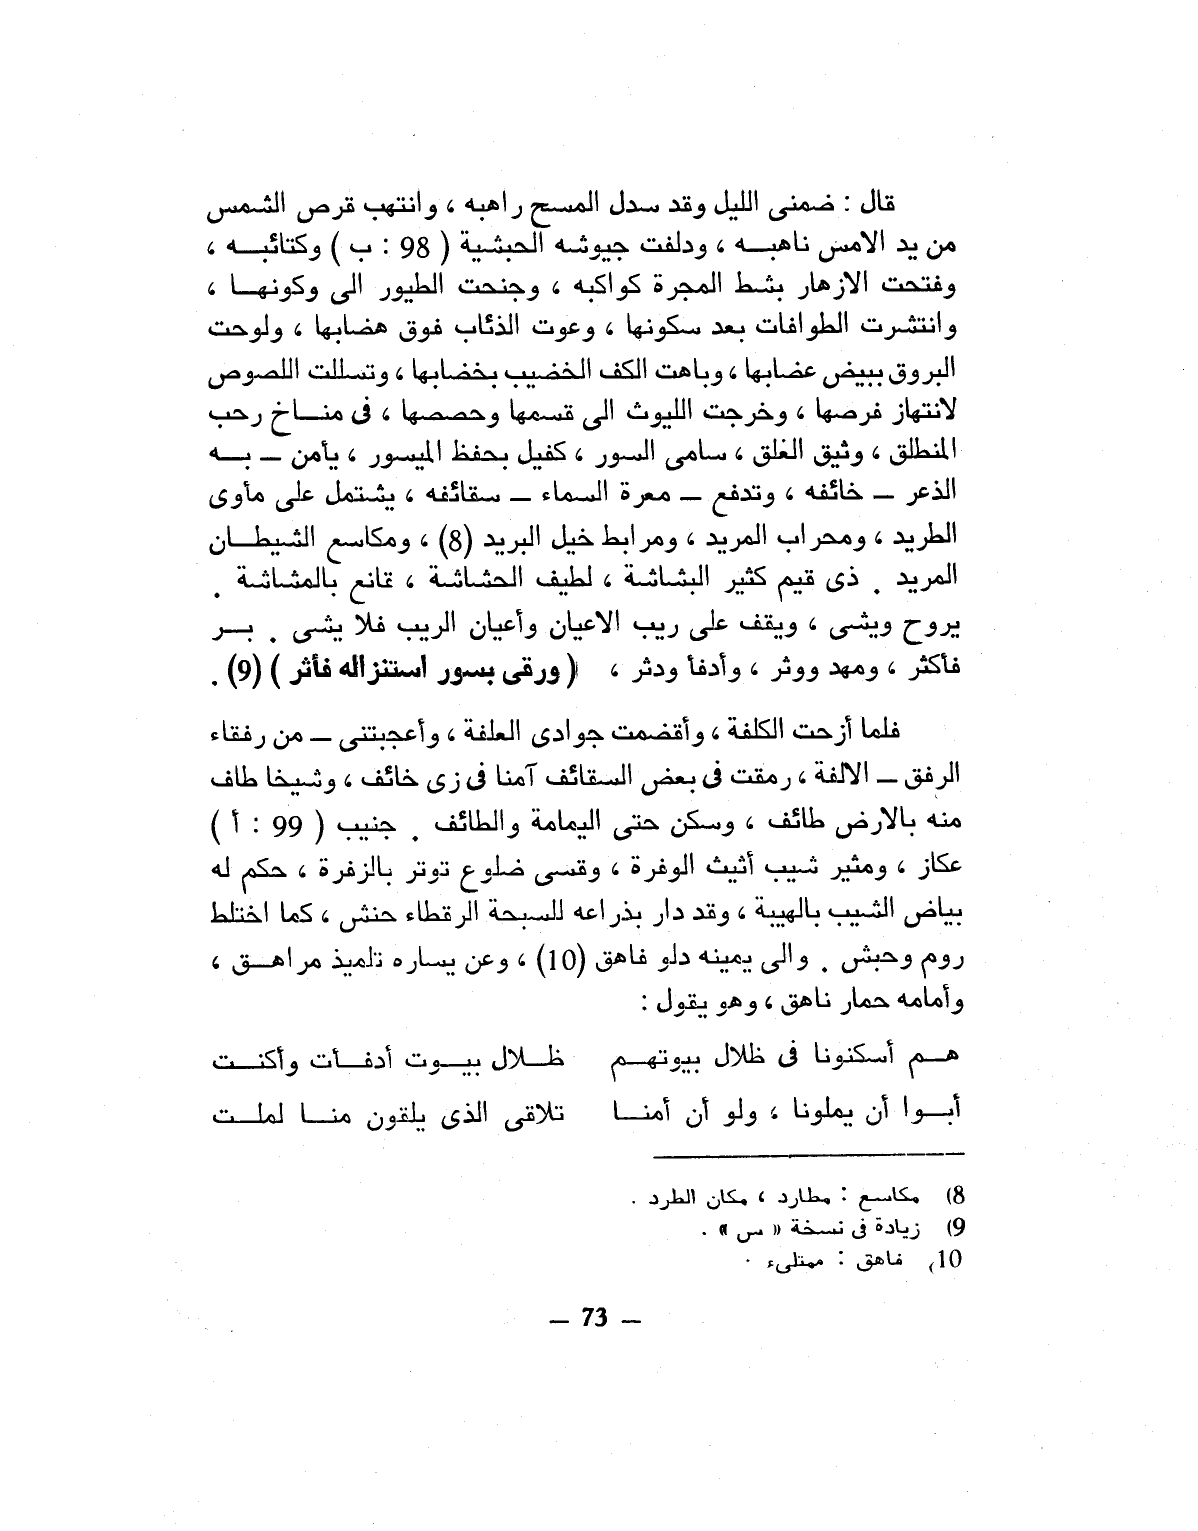 قال : ضمنى الليل وقد سدل المسح راهبه ، وانتهب قرص الشمس
من يد الامس ناهبه ، ودلفت جيوشه الحبشية ( 98 : ب ) وكتائبه ،
وفتحت الازهار بشط المجرة كواكبه ، وجنحت الطيور الى وكونها ،
وانتشرت الطوافات بعد سكونها ، وعوت الذئاب فوق هضابها ، ولوحت
البروق ببيض عضابها ، وباهت الكف الخضيب بخضابها ، وتسللت اللصوص
لانتهاز فرصها ، وخرجت الليوث الى قسمها وحصصها ، فى مناخ رحب
المنطلق ، وثيق الغلق ، سامى السور ، كفيل بحفظ الميسور ، يأمن – به
الذعر – خائفه ، وتدفع – معرة السماء – سقائفه ، يشتمل على مأوى
الطريد ، ومحراب المريد ، ومرابط خيل البريد (8) ، ومكاسع الشيطان
المريد . ذى قيم كثير البشاشة ، لطيف الحشاشة ، قانع بالمشاشة .
يروح ويشى ، ويقف على ريب الاعيان وأعيان الريب فلا يشى . بر
فأكثر ، ومهد ووثر ، وأدفأ ودثر ، ( ورقى بسور استنزاله فأثر ) (9) .
فلما أزحت الكلفة ، وأقضمت جوادى العلفة ، وأعجبتنى – من رفقاء
الرفق – الالفة ، رمقت فى بعض السقائف آمنا فى زى خائف ، وشيخا طاف
منه بالارض طائف ، وسكن حتى اليمامة والطائف . جنيب ( 99 : أ )
عكاز ، ومثير شيب أثيث الوفرة ، وقسى ضلوع توتر بالزفرة ، حكم له
بياض الشيب بالهيبة ، وقد دار بذراعه للسبحة الرقطاء حنش ، كما اختلط
روم وحبش . والى يمينه دلو فاهق (10) ، وعن يساره تلميذ مراهق ،
وأمامه حمار ناهق ، وهو يقول :
هم أسكنونا فى ظلال بيوتهم ظلال بيوت أدفأت وأكنت
أبوا أن يملونا ، ولو أن أمنا تلاقى الذى يلقون منا لملت
8) مكاسع : مطارد ، مكان الطرد .
9) زيادة فى نسخة « س » .
10) فاهق : ممتلىء .
– 73 –